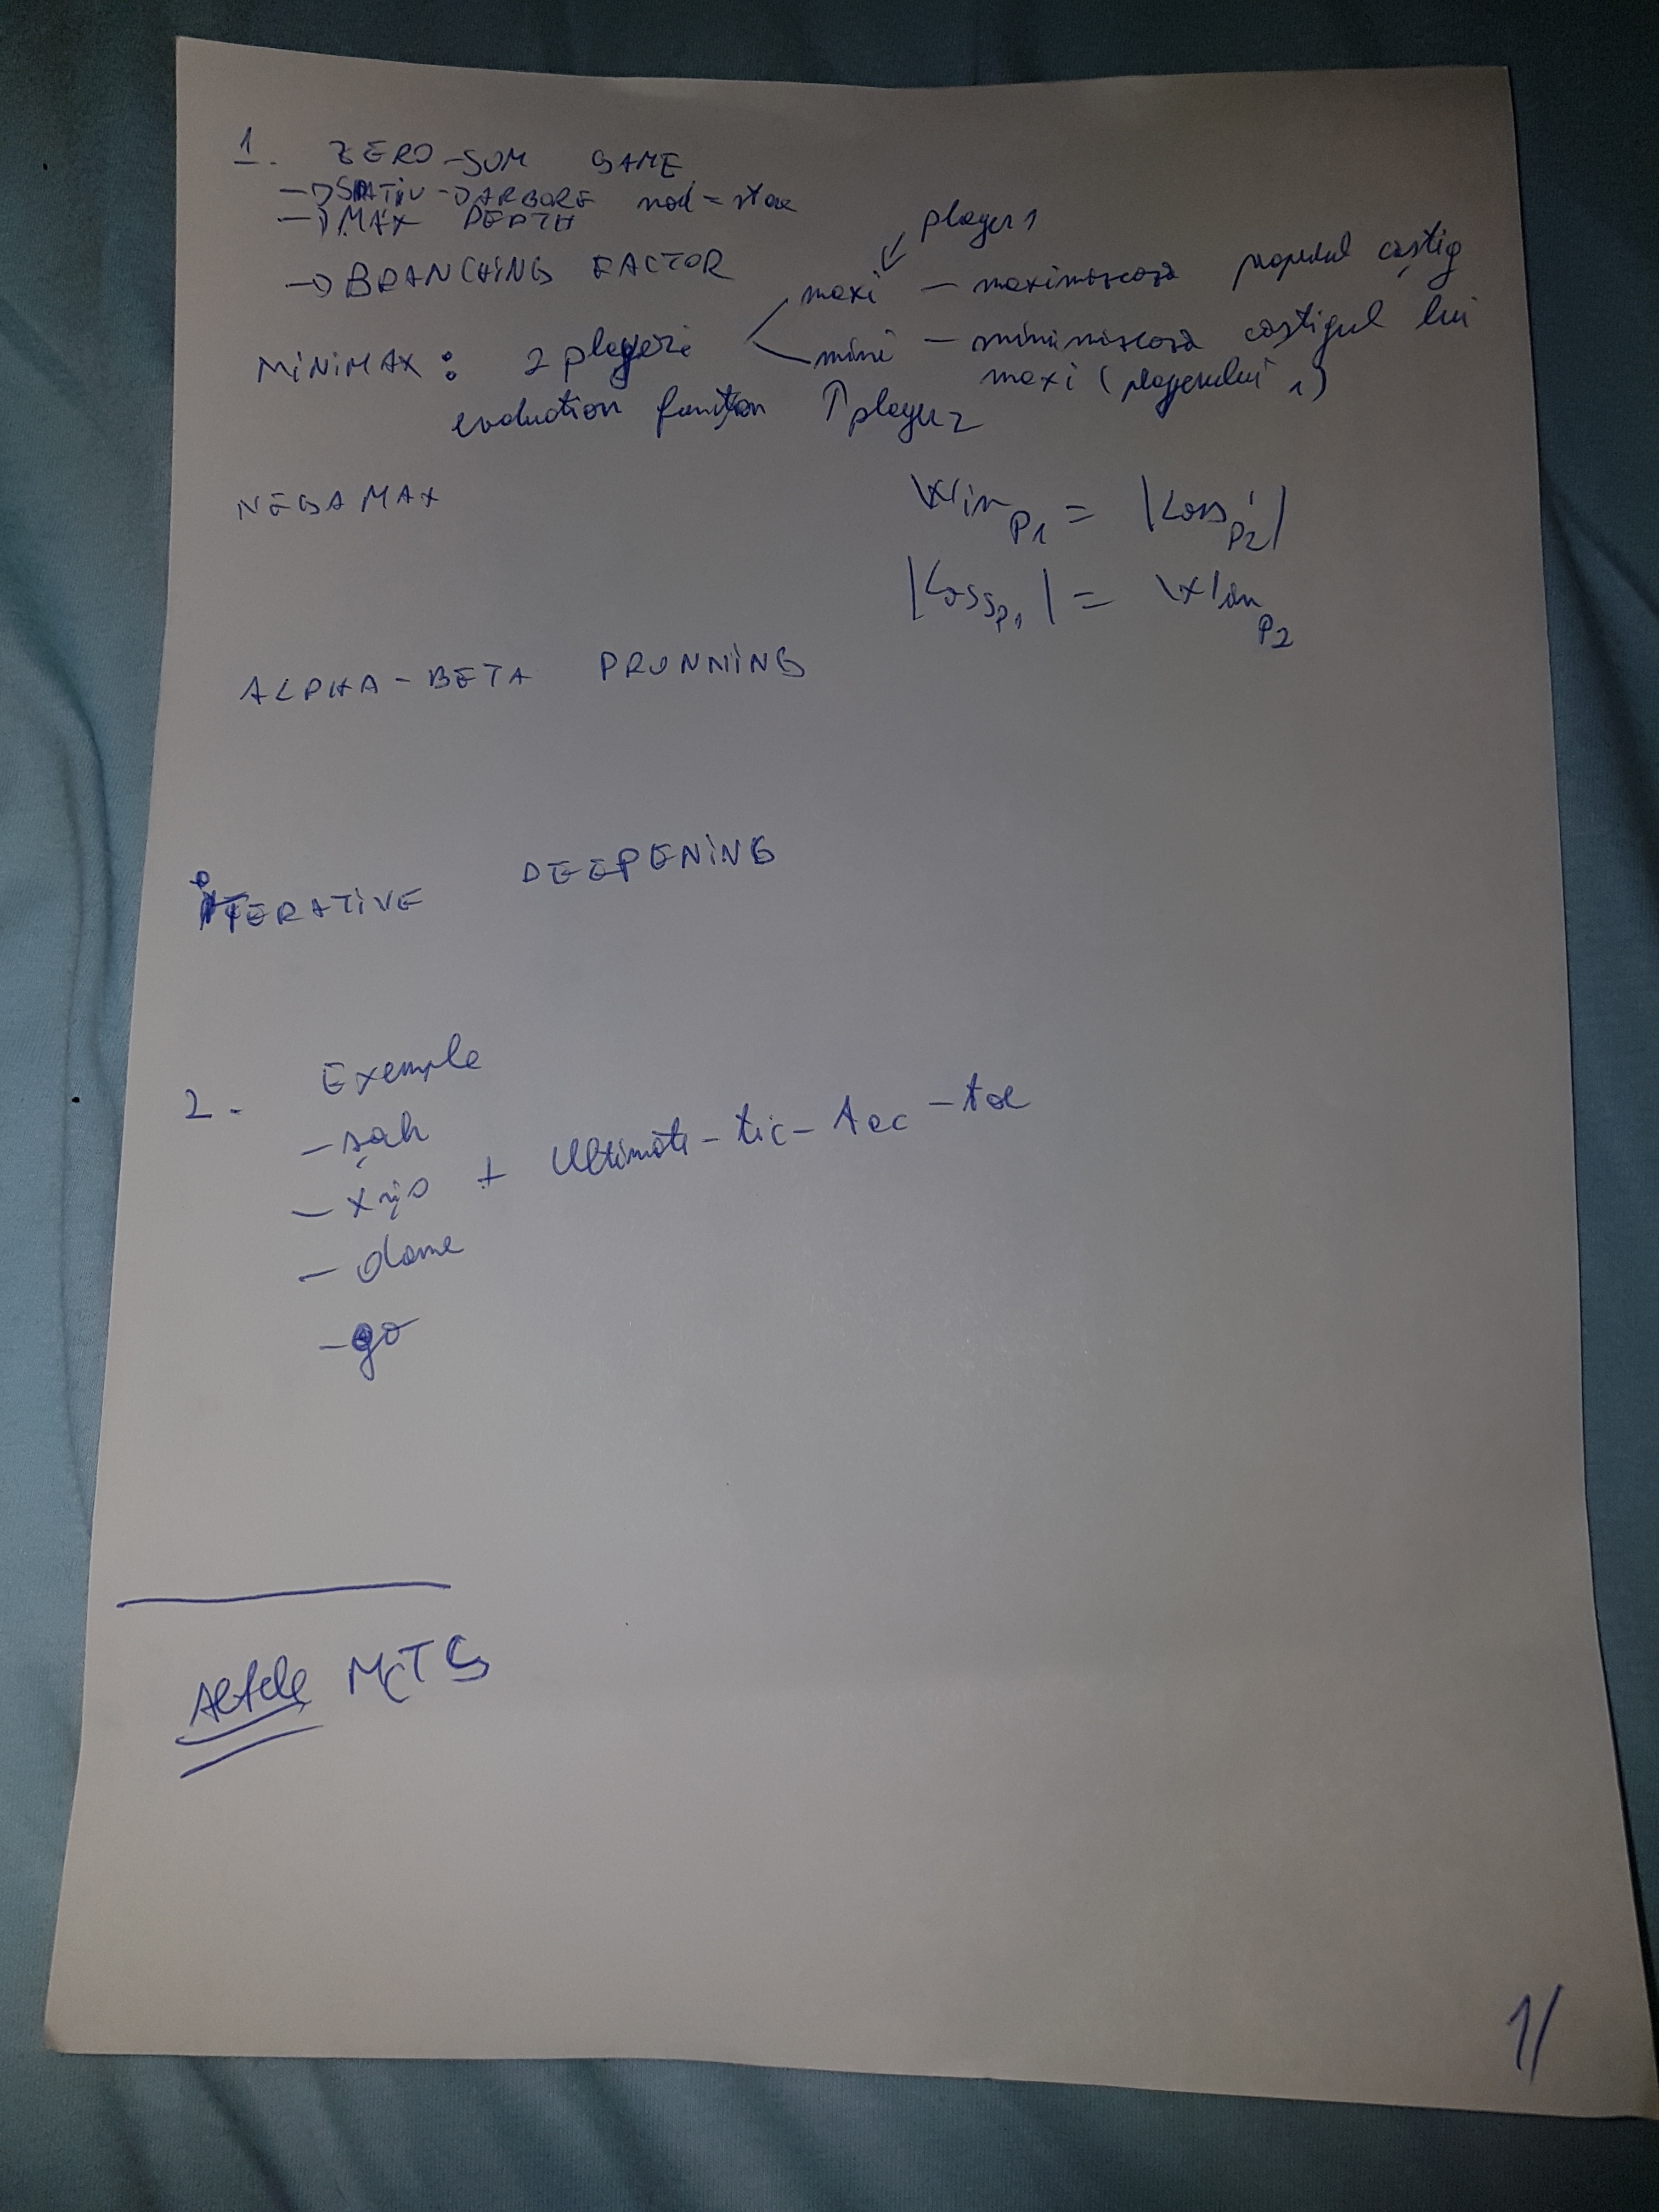 1. ZERO-SUM GAME
→ SPATIU → ARBORE nod = stare
→ MAX DEPTH
→ BRANCHING FACTOR
player 1
maxi — maximizează propriul câștig
MINIMAX: 2 playeri
mini — minimizează castigul lui
maxi (playerului 1)
evaluation function ↑ player 2
NEGAMAX
Win P1 = |Loss P2|
|Loss P1| = Win P2
ALPHA-BETA PRUNNING
ITERATIVE DEEPENING
2. Exemple
- șah
- x și 0 + Ultimate-tic-tac-toe
- dame
- go
Altele MCTS
1/